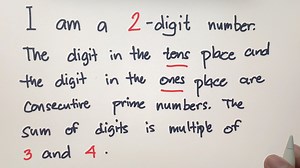 I am a 2-digit number.
The digit in the tens place and
the digit in the ones place are
consecutive prime numbers. The
sum of digits is multiple of
3 and 4.